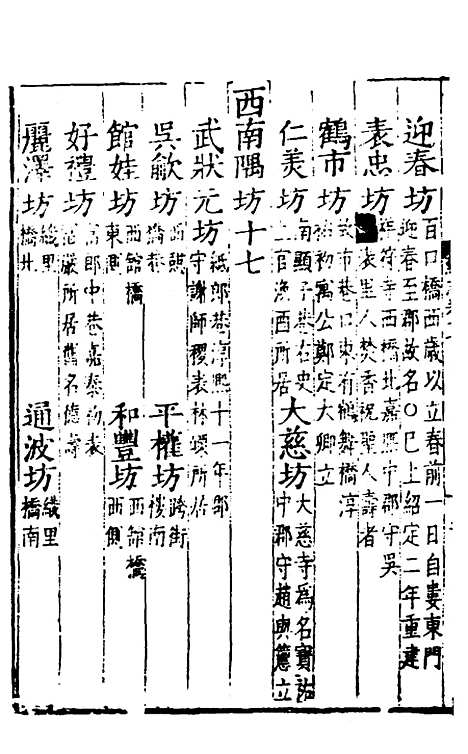 迎春坊 百口橋西歲以立春前一日自婁東門迎春至郡故名○巳上紹定二年重建
表忠坊 祥符寺西橋北嘉熙中郡守吳 表里人焚香祝聖人壽者
鶴市坊 市巷口東有鶴舞橋淳祐初寓公鄭定大卿立
仁美坊 南顯子巷右史 官漁酉所居 大慈坊 大慈寺爲名寶祐中郡守趙與𥲅立
西南隅坊十七
武狀元坊 紙郎巷淳熙十一年郡守謝師稷表林頌所居
吳歈坊 西 橋巷 平權坊 跨街樓南
館娃坊 西館橋東側 和豐坊 西館橋西側
好禮坊 富郎中巷嘉泰初表 嚴所居舊名德壽
麗澤坊 織里橋北 通波坊 織里橋南